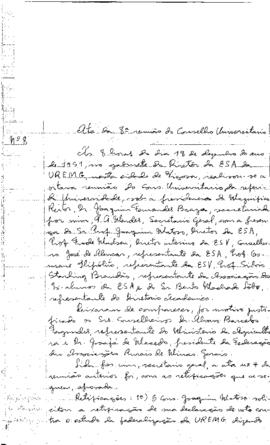 Ata da 8ª reunião do Conselho Universitário
Nº 8
Às 8 horas do dia 19 de dezembro do ano
de 1951, no gabinete do Diretor da ESA da
UREMG, nesta cidade de Viçosa, realizou-se a
oitava reunião do Cons. Universitário da referi-
da Universidade, sob a presidência do Magnífico
Reitor, Dr. Joaquim Fernandes Braga, secretariada
por mim, Secretário Geral, com a presen-
ça do Sr. Prof. Joaquim Matoso, Diretor da ESA,
Prof. diretor interino da ESV, Conselhei-
ro José de Alencar, representante da ESA, Prof. Geo-
representante da ESV, Prof. Sylvio
Starling Brandão, representante da Associação dos
Ex-alunos da ESA e Sr. Bento Machado Lôbo,
representante do Diretório Acadêmico.
Deixaram de comparecer, por motivo justi-
ficado os Srs. Conselheiros Dr. Álvaro Barcelos
Fagundes, representante do Ministério da Agricultu-
ra e Dr. Josafá de Macedo, presidente da Federação
das Associações Rurais de Minas Gerais.
Lida por mim, secretário geral, a ata nº 7 da
reunião anterior foi, com as retificações que se se-
guem, aprovada.
Retificações: 1º) O Cons. Joaquim Matoso soli-
citou a retificação de sua declaração de voto con-
tra o estudo da federalização da UREMG dizendo